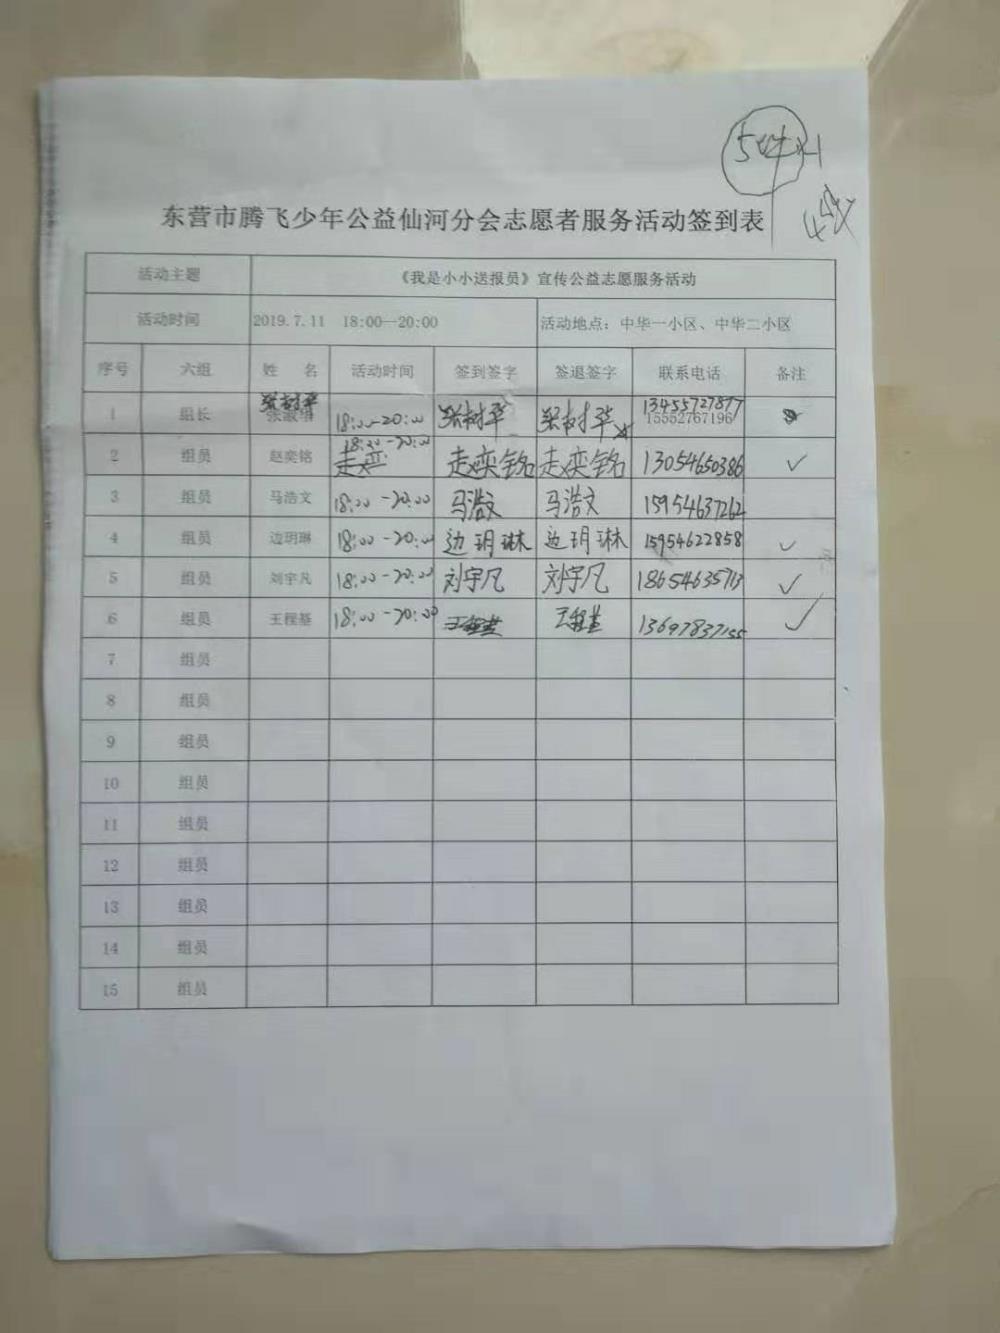 东营市腾飞少年公益仙河分会志愿者服务活动签到表
活动主题 《我是小小送报员》宣传公益志愿服务活动
活动时间 2019.7.11 18:00—20:00 活动地点：中华一小区、中华二小区
序号 六组 姓 名 活动时间 签到签字 签退签字 联系电话 备注
张树华 13455727877
1 组长 18:00-20:00 张树华 张树华 15552767196
18:00-20:00
2 组员 赵奕铭 赵奕铭 赵奕铭 13054650386 ✓
3 组员 马浩文 18:00-20:00 马浩文 马浩文 15954637262
4 组员 边玥琳 18:00-20:00 边玥琳 边玥琳 15954622858 ✓
5 组员 刘宇凡 18:00-20:00 刘宇凡 刘宇凡 18654635713 ✓
6 组员 王程基 18:00-20:00 王程基 13697837155 ✓
7 组员
8 组员
9 组员
10 组员
11 组员
12 组员
13 组员
14 组员
15 组员